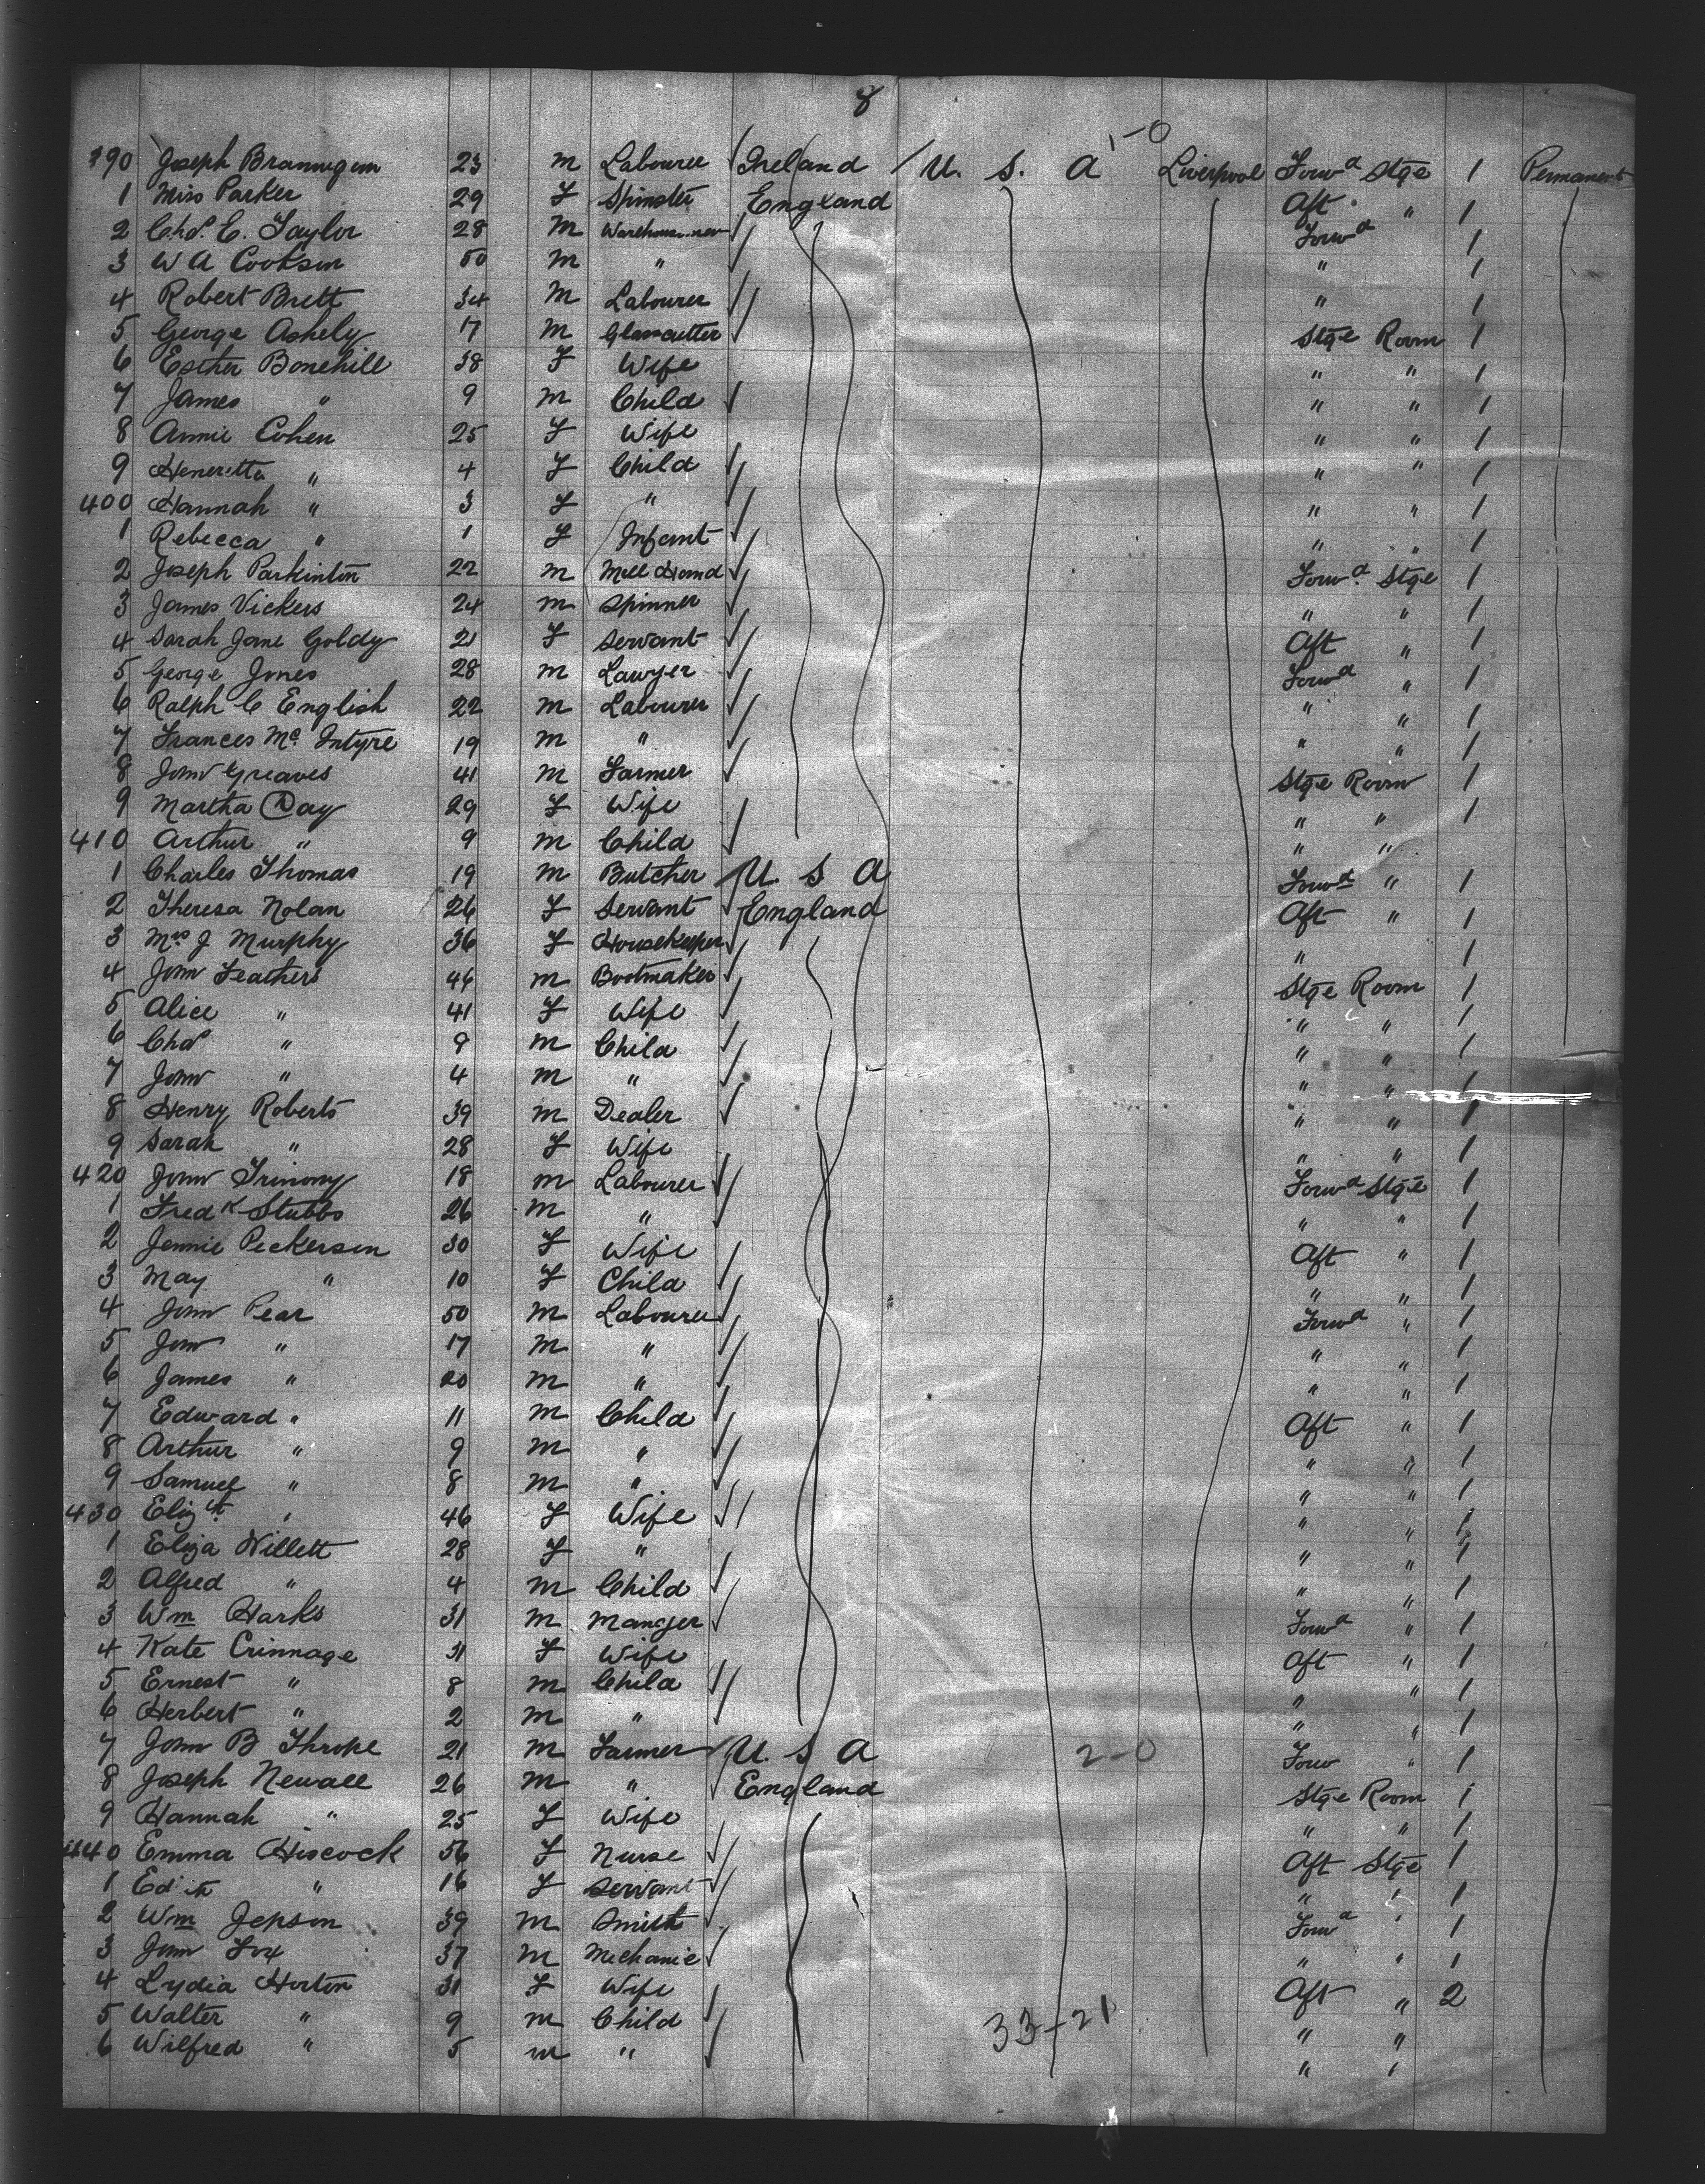 8
1-0
390 Joseph Brannigan 23 m Labourer Ireland U. S. A Liverpool Forwd Stge 1 Permanent
1 Miss Parker 29 F Spinster England Aft " 1
2 Chas. E. Taylor 28 m Warehouseman Forwd 1
3 W A Cookson 50 m " " 1
4 Robert Brett 34 m Labourer " 1
5 George Ashely 17 m Glasscutter Stge Room 1
6 Esther Bonehill 38 F Wife " " 1
7 James " 9 m Child " " 1
8 Annie Cohen 25 F Wife " " 1
9 Heneritta " 4 F Child " " 1
400 Hannah " 3 F " " " 1
1 Rebecca " 1 F Infant " " 1
2 Joseph Parkinton 22 m Mill Hand Forwd Stge 1
3 James Vickers 24 m Spinner " " 1
4 Sarah Jane Goldy 21 F Servant Aft " 1
5 George Jones 28 m Lawyer Forwd " 1
6 Ralph C English 22 m Labourer " " 1
7 Frances Mc Intyre 19 m " " " 1
8 John Greaves 41 m Farmer Stge Room 1
9 Martha Day 29 F Wife " " 1
410 Arthur " 9 m Child " "
1 Charles Thomas 19 m Butcher U. S A Forwd " 1
2 Theresa Nolan 26 F Servant England Aft " 1
3 Mrs J Murphy 36 F Housekeeper " 1
4 John Feathers 46 m Bootmaker Stge Room 1
5 Alice " 41 F Wife " " 1
6 Chas " 9 m Child " " 1
7 John " 4 m " " " 1
8 Henry Roberts 39 m Dealer " " 1
9 Sarah " 28 F Wife " " 1
420 John 18 m Labourer Forwd Stge 1
1 Fredk Stubbs 26 m " " " 1
2 Jennie Peckerson 30 F Wife Aft " 1
3 May " 10 F Child " " 1
4 John Pear 50 m Labourer Forwd " 1
5 Jon " 17 m " " " 1
6 James " 20 m " " " 1
7 Edward " 11 m Child Aft " 1
8 Arthur " 9 m " " " 1
9 Samuel " 8 m " " " 1
430 Elizth " 46 F Wife " " 1
1 Eliza Willett 28 F " " " 1
2 Alfred " 4 m Child " " 1
3 Wm Harks 31 m Manger Forwd " 1
4 Kate Crinnage 31 F Wife Aft " 1
5 Ernest " 8 m Child " " 1
6 Herbert " 2 m " " " 1
7 John B Thrope 21 m Farmer U. S A 2-0 Forw " 1
8 Joseph Newall 26 m " England Stge Room 1
9 Hannah " 25 F Wife " " 1
440 Emma Hiscock 56 F Nurse Aft Stge 1
1 Edith " 16 F Servant " " 1
2 Wm Jepson 39 m Smith Forwd " 1
3 John Fox 37 m Mechanic " " 1
4 Lydia Horton 31 F Wife Aft " 2
5 Walter " 9 m Child 33-21 " "
6 Wilfred " 5 m " " "